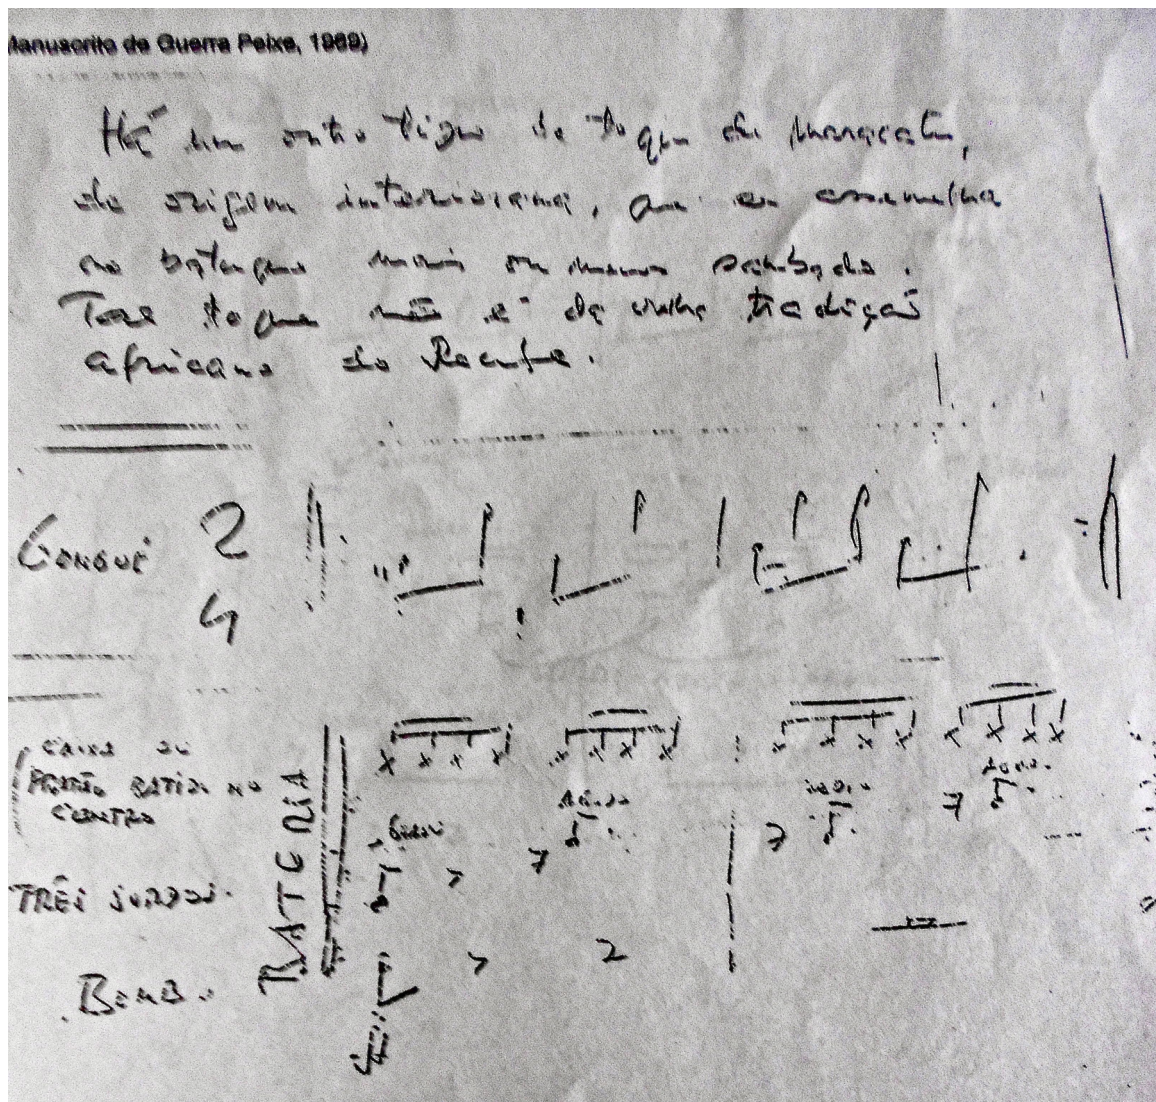 Manuscrito de Guerra Peixe, 1969)
Há um outro tipo de toque de Maracatu,
de origem interiorana, que se assemelha
ao batuque mais ou menos sambado.
Tal toque não é da velha tradição
africana do Recife.
Gonguê 2
4
Caixa ou
batida no
centro
BATERIA
Agudo
Médio
Agudo
Grave
Três surdos.
Bombo